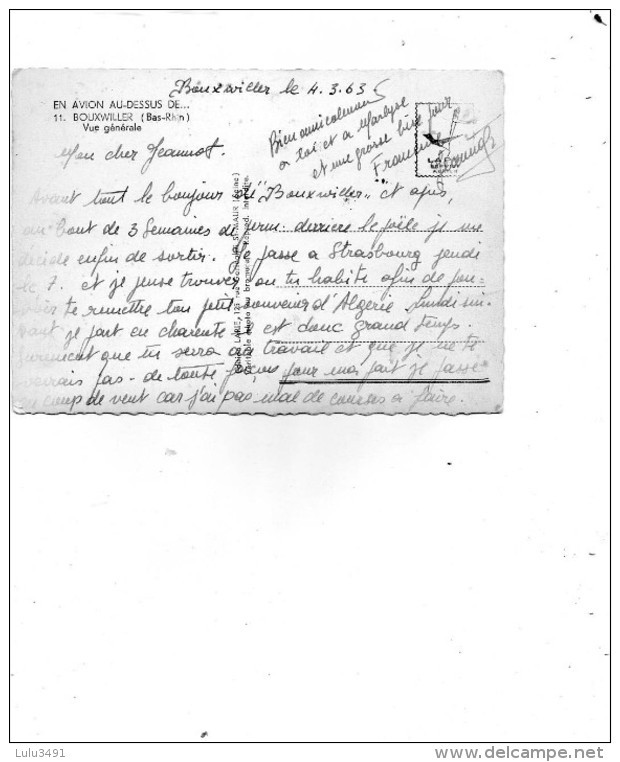 Bouxwiller le 4.3.63
EN AVION AU-DESSUS DE...
11. BOUXWILLER (Bas-Rhin)
Vue générale
Bien amicalement
à toi et à Marlyse
et une grosse bise pour
Francine
LAPIE
Mon cher Jeannot.
Avant tout le bonjour de "Bouxwiller" et après,
au bout de 3 semaines de perm. derrière le poêle je me
décide enfin de sortir. Je passe à Strasbourg jeudi
le 7. et je pense trouver où tu habite afin de pou-
voir te remettre ton petit souvenir d'Algerie. Lundi sui-
vant je part en charente il est donc grand temps.
Surement que tu seras au travail et que je ne te
verrais pas - de toute façons pour moi fait je passe
en coup de vent car j'ai pas mal de courses à faire.
Lulu3491
www.delcampe.net